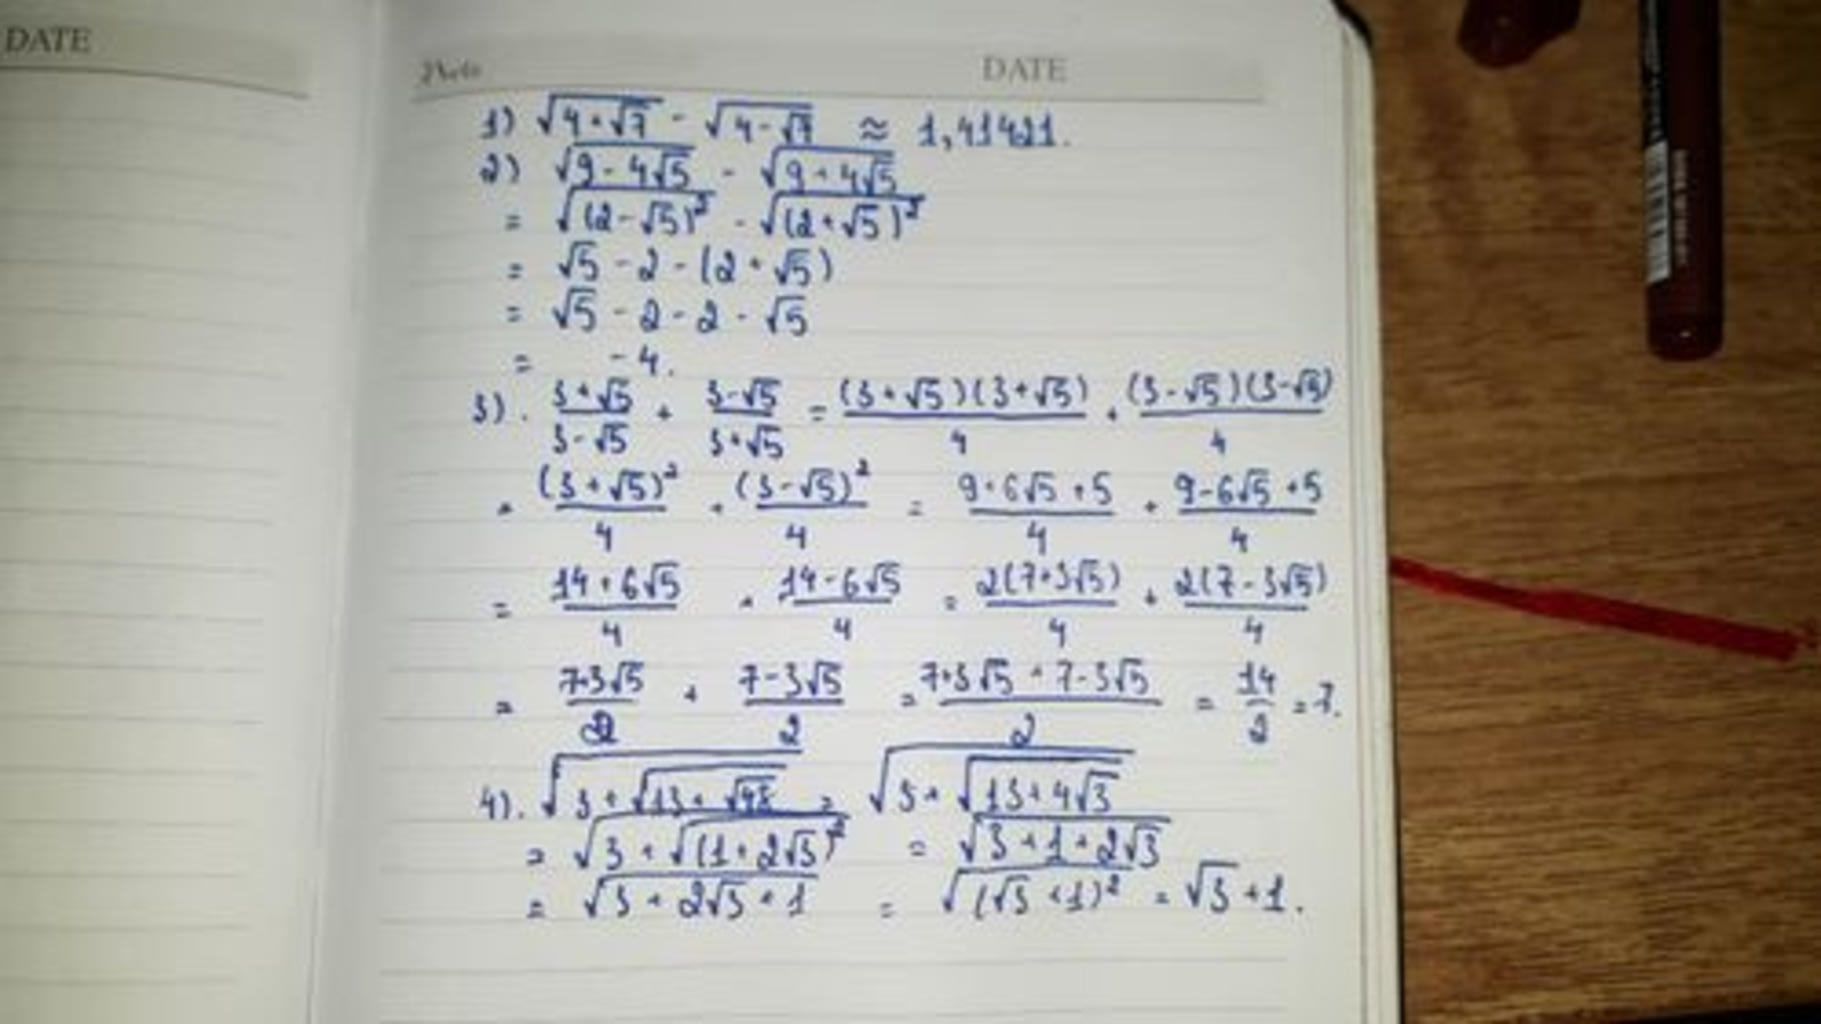 DATE
Note DATE
1) √(4+√7) - √(4-√7) ≈ 1,41421.
2) √(9-4√5) - √(9+4√5)
= √((2-√5)²) - √((2+√5)²)
= √5 - 2 - (2+√5)
= √5 - 2 - 2 - √5
= -4.
3). (3+√5)/(3-√5) + (3-√5)/(3+√5) = (3+√5)(3+√5)/4 + (3-√5)(3-√5)/4
= (3+√5)²/4 + (3-√5)²/4 = (9+6√5+5)/4 + (9-6√5+5)/4
= (14+6√5)/4 + (14-6√5)/4 = 2(7+3√5)/4 + 2(7-3√5)/4
= (7+3√5)/2 + (7-3√5)/2 = (7+3√5+7-3√5)/2 = 14/2 = 7.
4). √(3+√(13+√48)) = √(3+√(13+4√3))
= √(3+√((1+2√3)²)) = √(3+1+2√3)
= √(3+2√3+1) = √((√3+1)²) = √3+1.